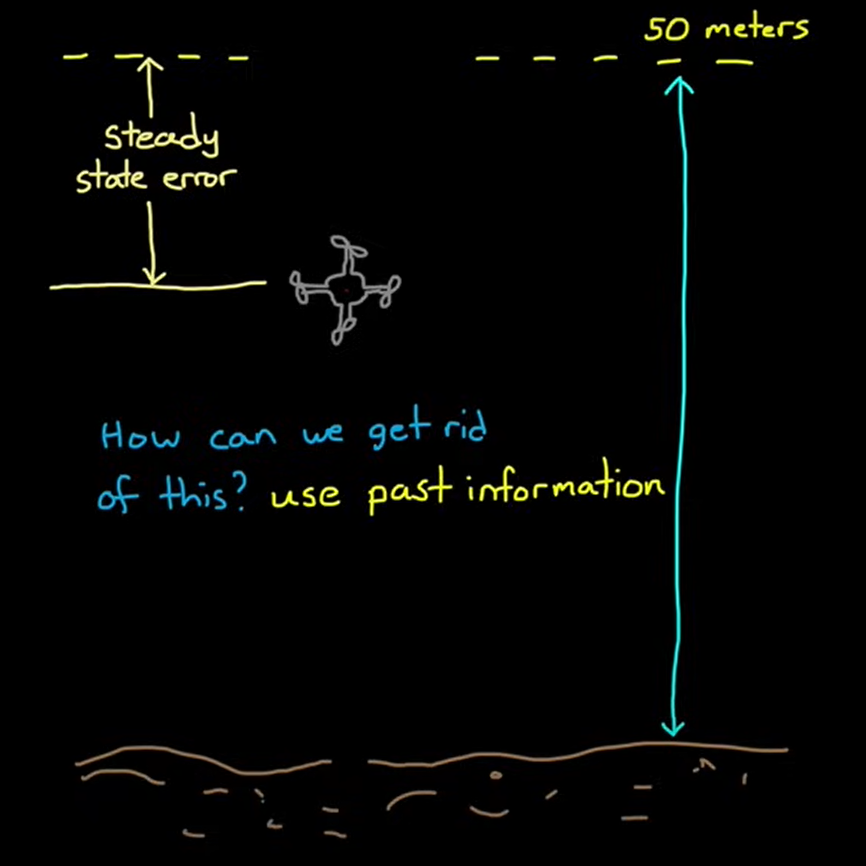 50 meters
steady
state error
How can we get rid
of this? use past information